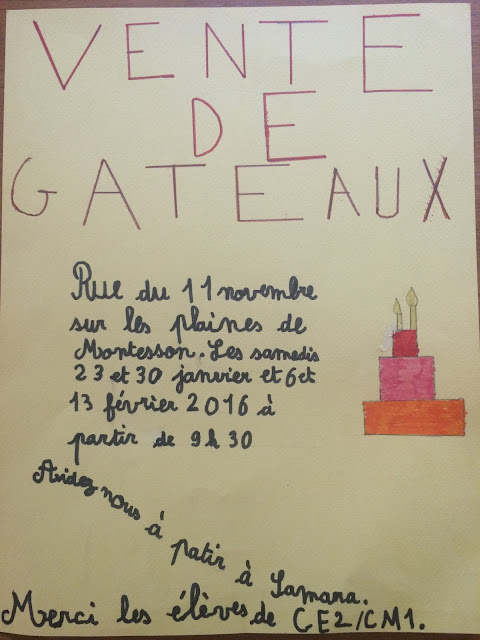 VENTE
DE
GATEAUX
Rue du 11 novembre
sur les plaines de
Montesson. Les samedis
23 et 30 janvier et 6 et
13 février 2016 à
partir de 9h30
Aidez nous à patir à Samara.
Merci les élèves de CE2/CM1.